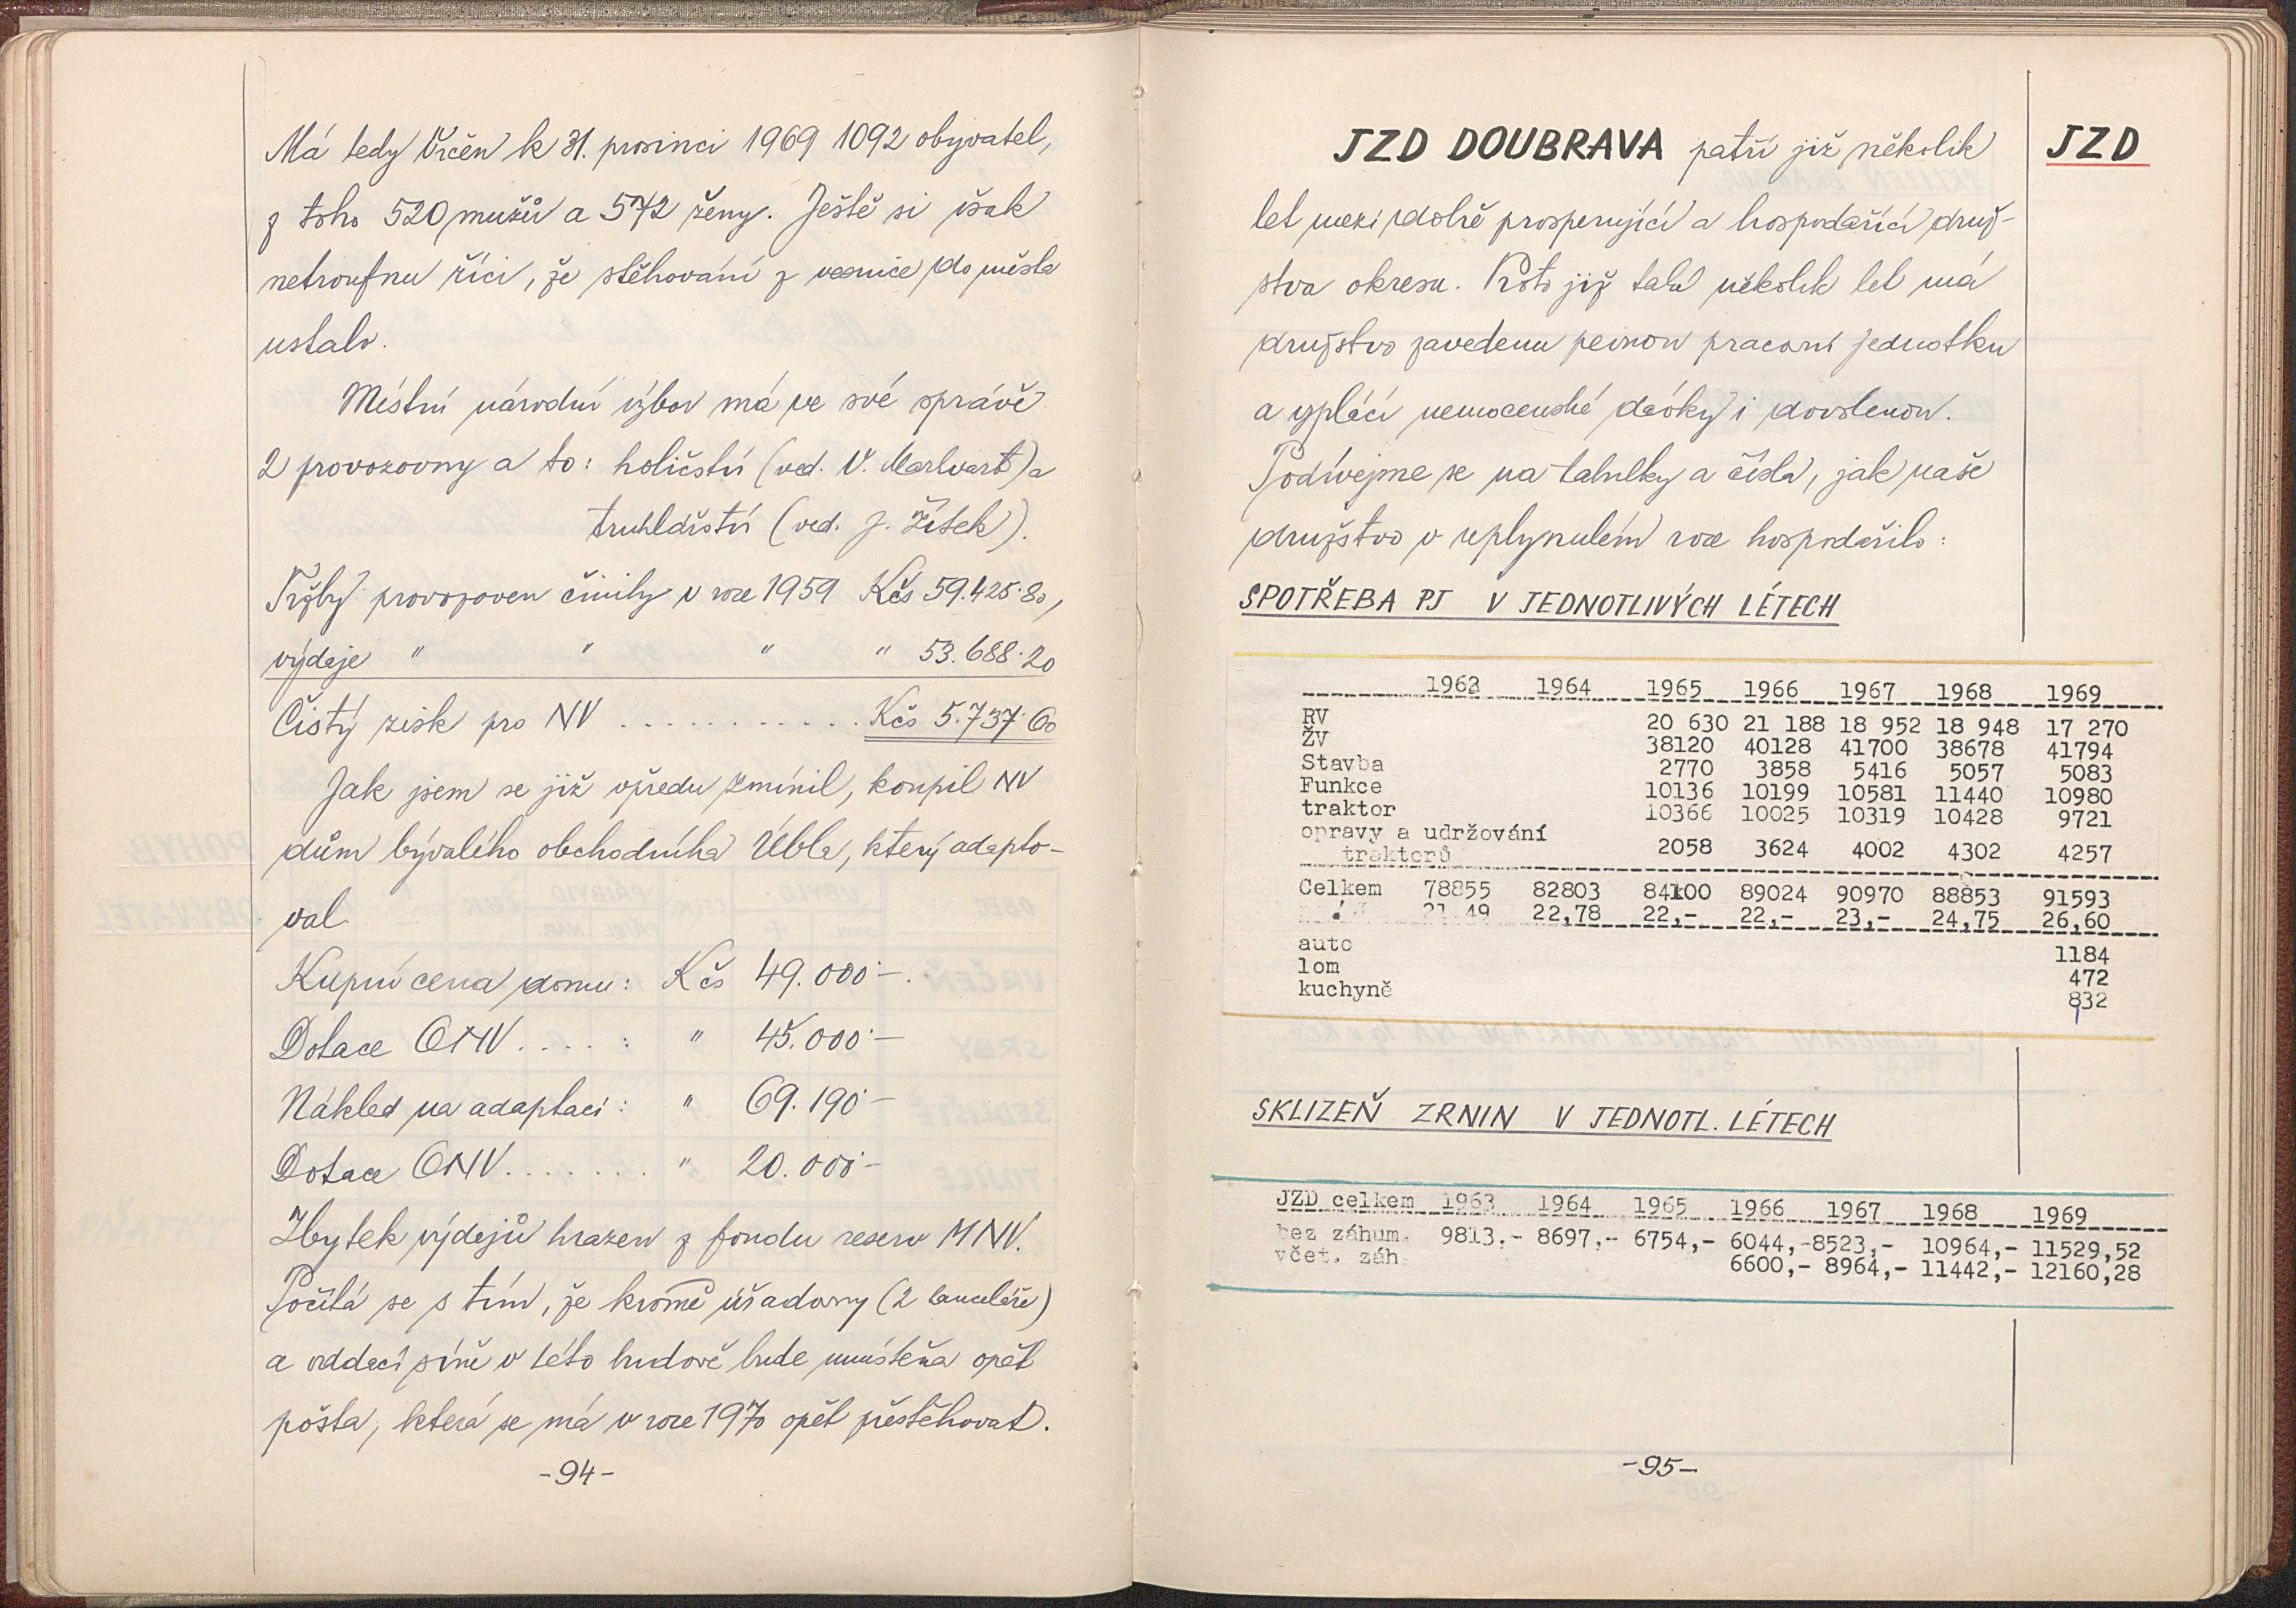 Má tedy Vrčeň k 31. prosinci 1969 1092 obyvatel,
z toho 520 mužů a 572 ženy. Ještě si však
netroufnu říci, že stěhování z vesnice do města
ustalo.
Místní národní výbor má ve své správě
2 provozovny a to: holičství (ved. V. Markvart) a
truhlářství (ved. J. Žítek).
Tržby provozoven činily v roce 1959 Kčs 59.425·80,
výdaje " " " " 53.688·20
Čistý zisk pro NV . . . . . . . . . . . . Kčs 5.737·60
Jak jsem se již vpředu zmínil, koupil NV
dům bývalého obchodníka Úbla, který adapto-
val.
Kupní cena domu: Kčs 49.000·-.
Dotace ONV . . . . : " 45.000·-
Náklad na adaptaci: " 69.190·-
Dotace ONV . . . . . . . " 20.000·-
Zbytek výdajů hrazen z fondu reserv MNV.
Počítá se s tím, že kromě úřadovny (2 kanceláře)
a oddací síně v této budově bude umístěna opět
pošta, která se má v roce 1970 opět přestěhovat.
-94-
JZD DOUBRAVA patří již několik
JZD
let mezi dobře prosperující a hospodařící druž-
stva okresu. Proto již také několik let má
družstvo zavedenu pevnou pracovní jednotku
a vyplácí nemocenské dávky i dovolenou.
Podívejme se na tabulky a čísla, jak naše
družstvo v uplynulém roce hospodařilo:
SPOTŘEBA PJ V JEDNOTLIVÝCH LÉTECH
1963 1964 1965 1966 1967 1968 1969
RV 20 630 21 188 18 952 18 948 17 270
ŽV 38120 40128 41700 38678 41794
Stavba 2770 3858 5416 5057 5083
Funkce 10136 10199 10581 11440 10980
traktor 10366 10025 10319 10428 9721
opravy a udržování
traktorů 2058 3624 4002 4302 4257
Celkem 78855 82803 84100 89024 90970 88853 91593
21,49 22,78 22,- 22,- 23,- 24,75 26,60
auto 1184
lom 472
kuchyně 832
SKLIZEŇ ZRNIN V JEDNOTL. LÉTECH
JZD celkem 1963 1964 1965 1966 1967 1968 1969
bez záhum. 9813,- 8697,- 6754,- 6044,- 8523,- 10964,- 11529,52
včet. záh. 6600,- 8964,- 11442,- 12160,28
-95-